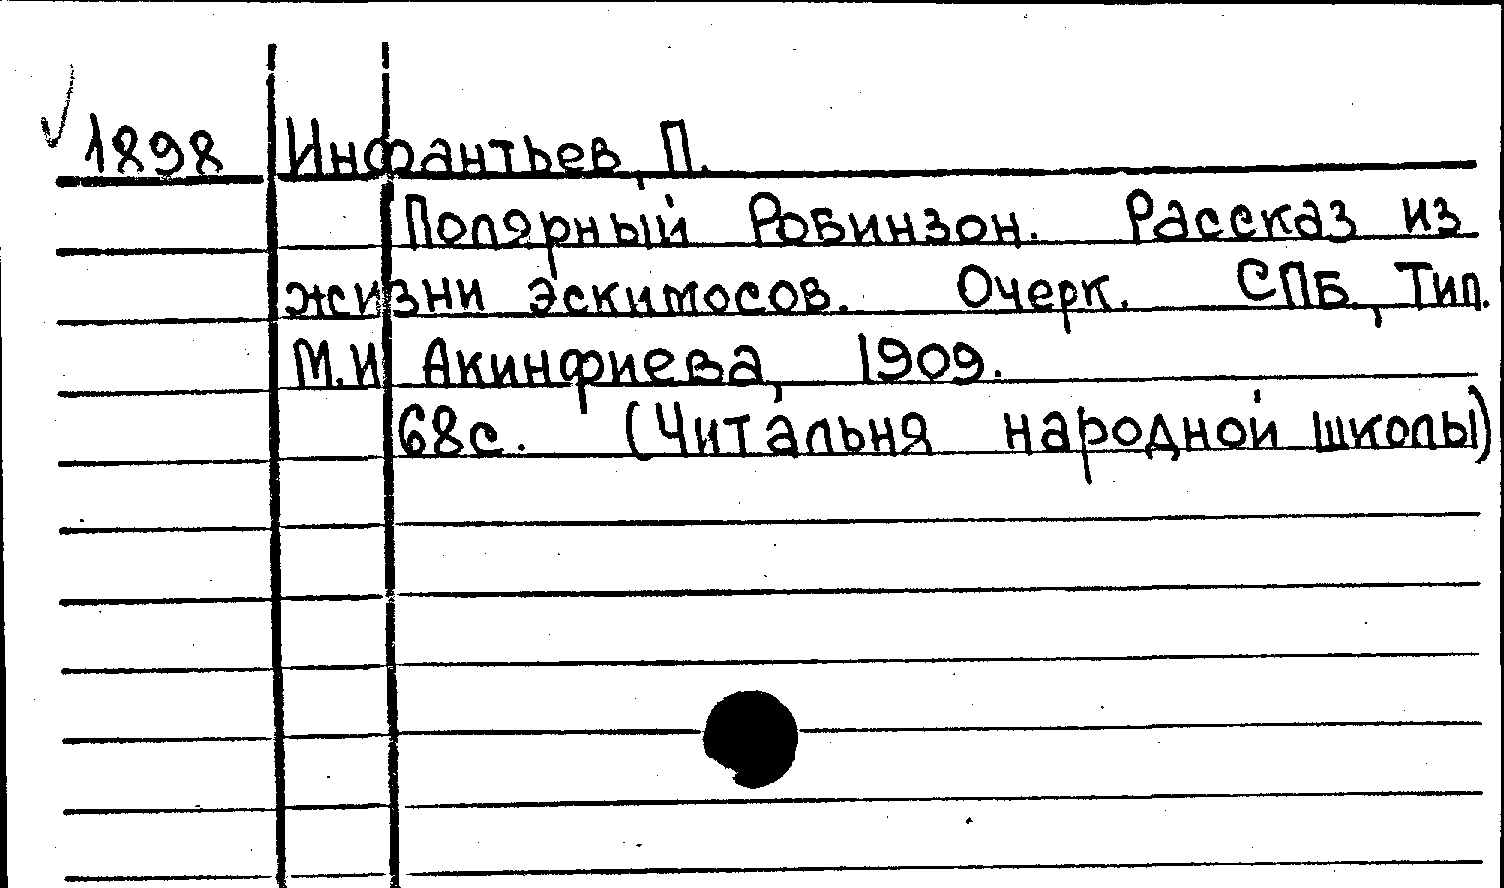 1898 Инфантьев, П.
Полярный Робинзон. Рассказ из
жизни эскимосов. Очерк. СПБ, Тип.
М.И Акинфиева, 1909.
68с. (Читальня народной школы)